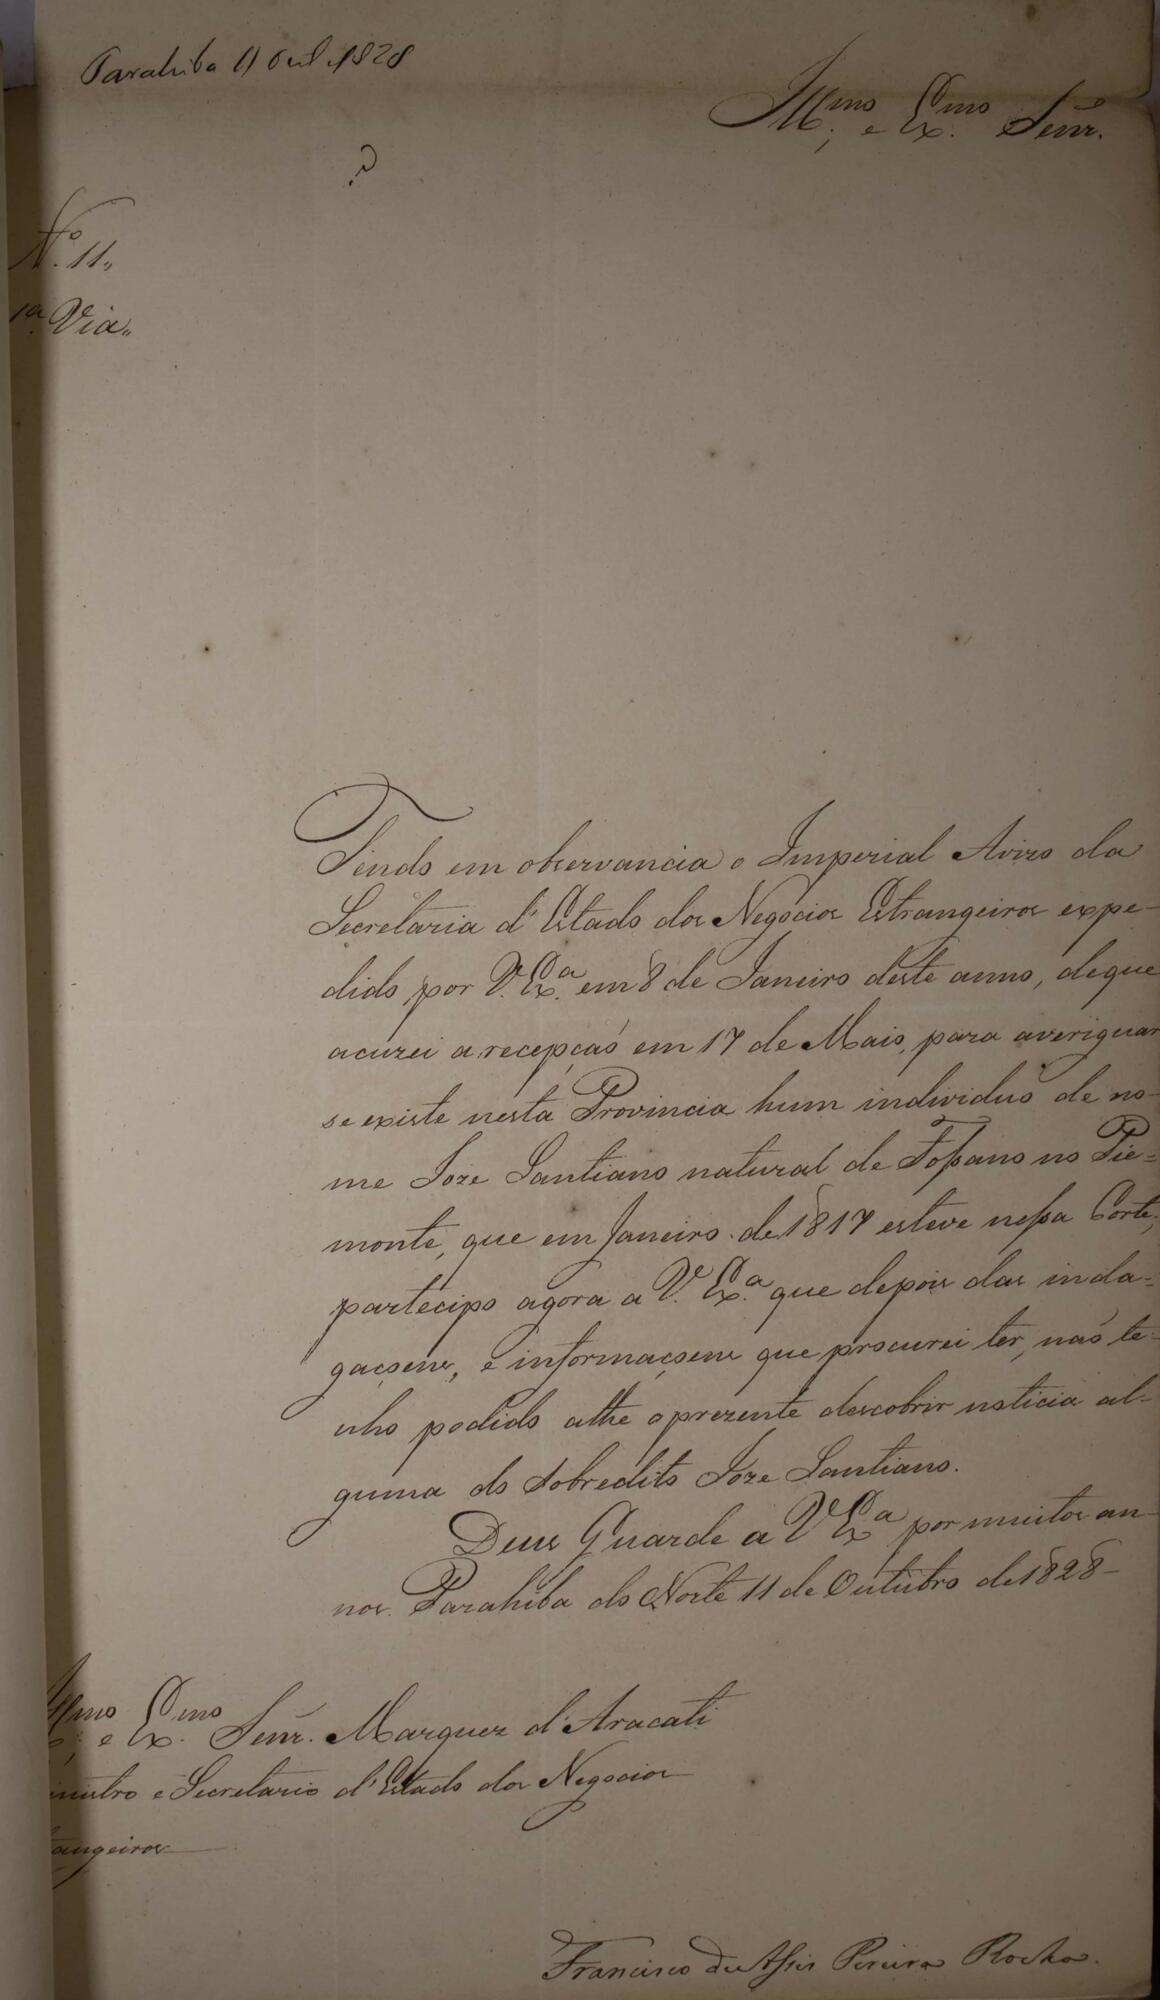 Parahiba 11 Out. 1828
Illmo. e Exmo. Senr.
?
Nº. 11,,
1ª. Via,,
Tendo em observancia o Imperial Avizo da
Secretaria d'Estado dos Negocios Estrangeiros expe-
dido por V. Exª. em 8 de Janeiro deste anno, de que
acuzei a recepçaõ em 17 de Maio, para averiguar
se existe nesta Provincia hum individuo de no-
me Joze Santiano natural de Foſsano no Pie=
monte, que em Janeiro de 1817 esteve neſsa Corte;
participo agora a V. Exª. que depois das inda=
gaçoens, e informaçoens que procurei ter, naõ te-
nho podido athe o prezente descobrir noticia al-
guma do sobredito Joze Santiano.
Deus Guarde a V Exª por muitos an-
nos. Parahiba do Norte 11 de Outubro de 1828-
Illmo. e Exmo. Senr. Marquez d'Aracati
inistro e Secretario d'Estado dos Negocios
trangeiros
Francisco de Aſsis Pereira Rocha.